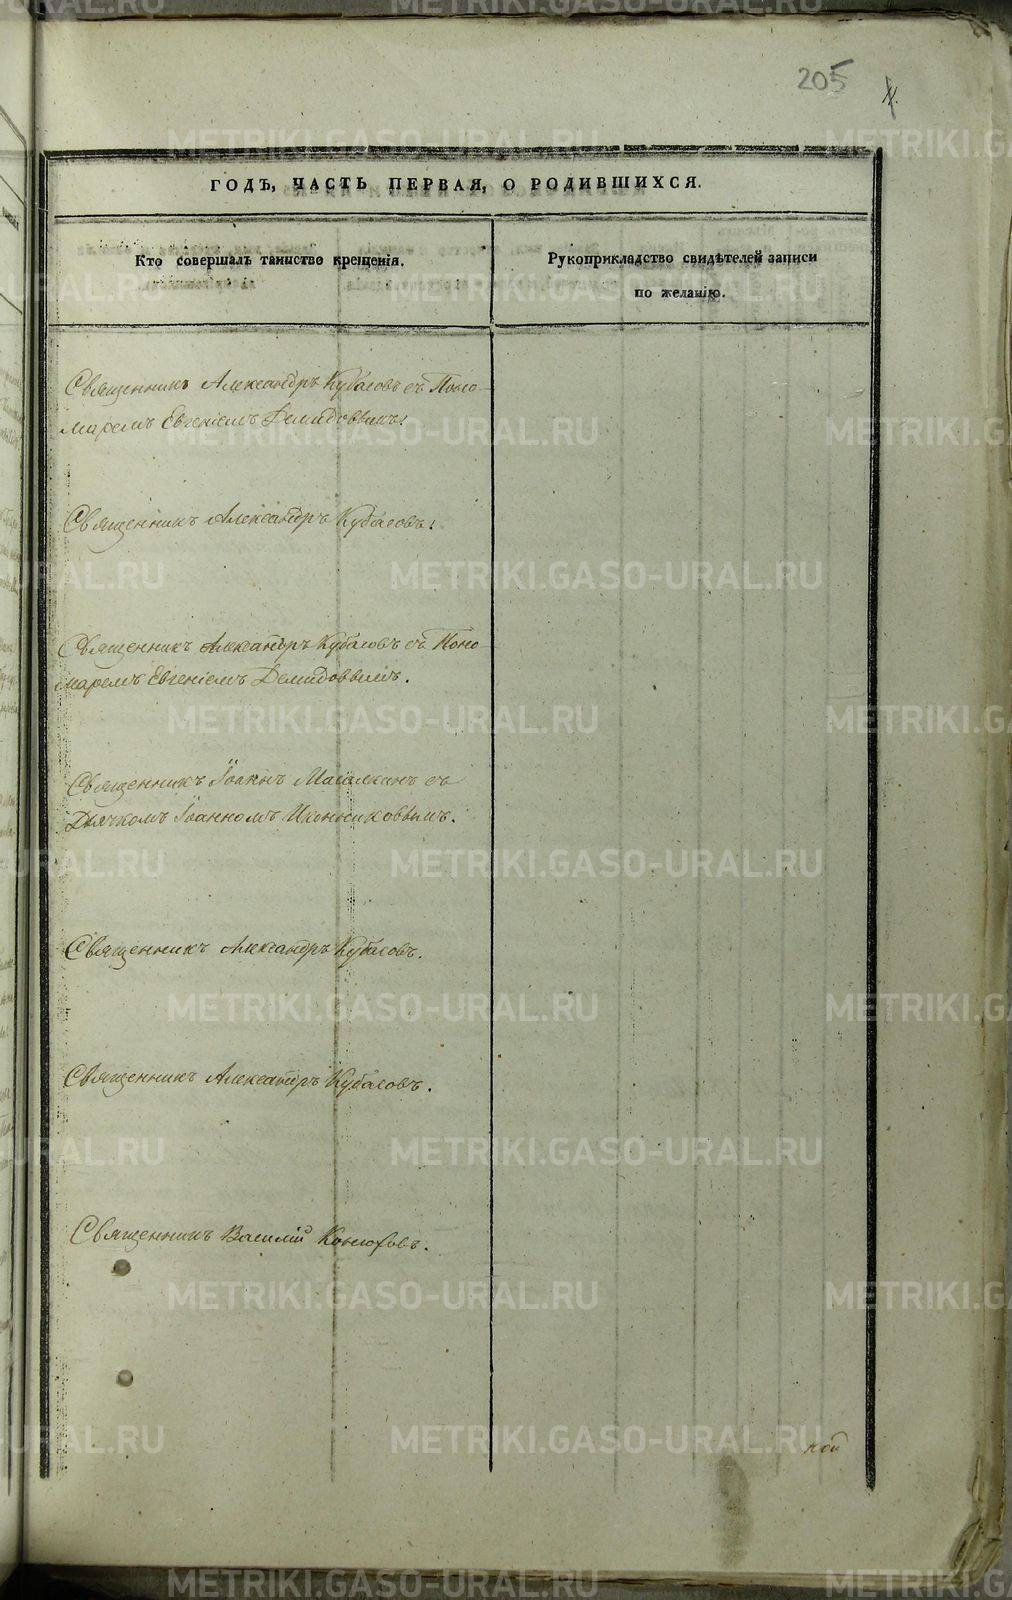 205
ГОДЪ, ЧАСТЬ ПЕРВАЯ, О РОДИВШИХСЯ.
Кто совершалъ таинство крещенія.
Рукоприкладство свидѣтелей записи
по желанію.
Священникъ Александръ Кубасовъ съ Поно-
маремъ Евгеніемъ Демидовымъ.
Священникъ Александръ Кубасовъ.
Священникъ Александръ Кубасовъ съ Поно-
маремъ Евгеніемъ Демидовымъ.
Священникъ Іоаннъ Масалкинъ съ
Дьячкомъ Іоанномъ Иконниковымъ.
Священникъ Александръ Кубасовъ.
Священникъ Александръ Кубасовъ.
Священникъ Василій Конюховъ.
METRIKI.GASO-URAL.RU